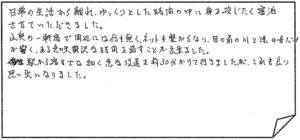 日常の生活から離れ、ゆっくりとした時間の中に身を投じたく宿泊
させていただきました。
山奥の一軒宿で周辺には何も無く、ネットも繋がらなく、目の前の川と滝の音だけ
が響く、ある意味贅沢な時間を過すことが出来ました。
駅から宿までは細く急な坂道を約30分かけて行きましたが、これも良い
思い出になりました。